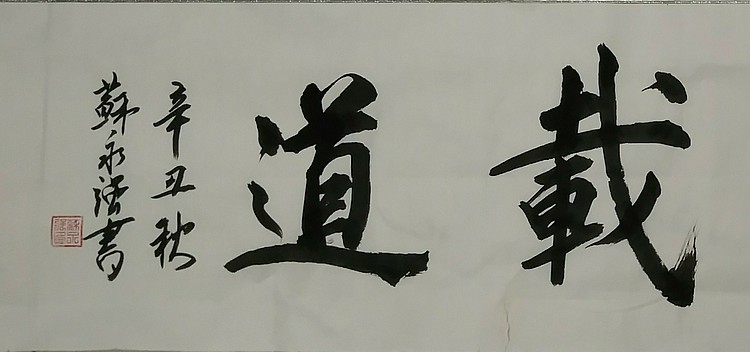 載道
辛丑秋
蘇永濤書